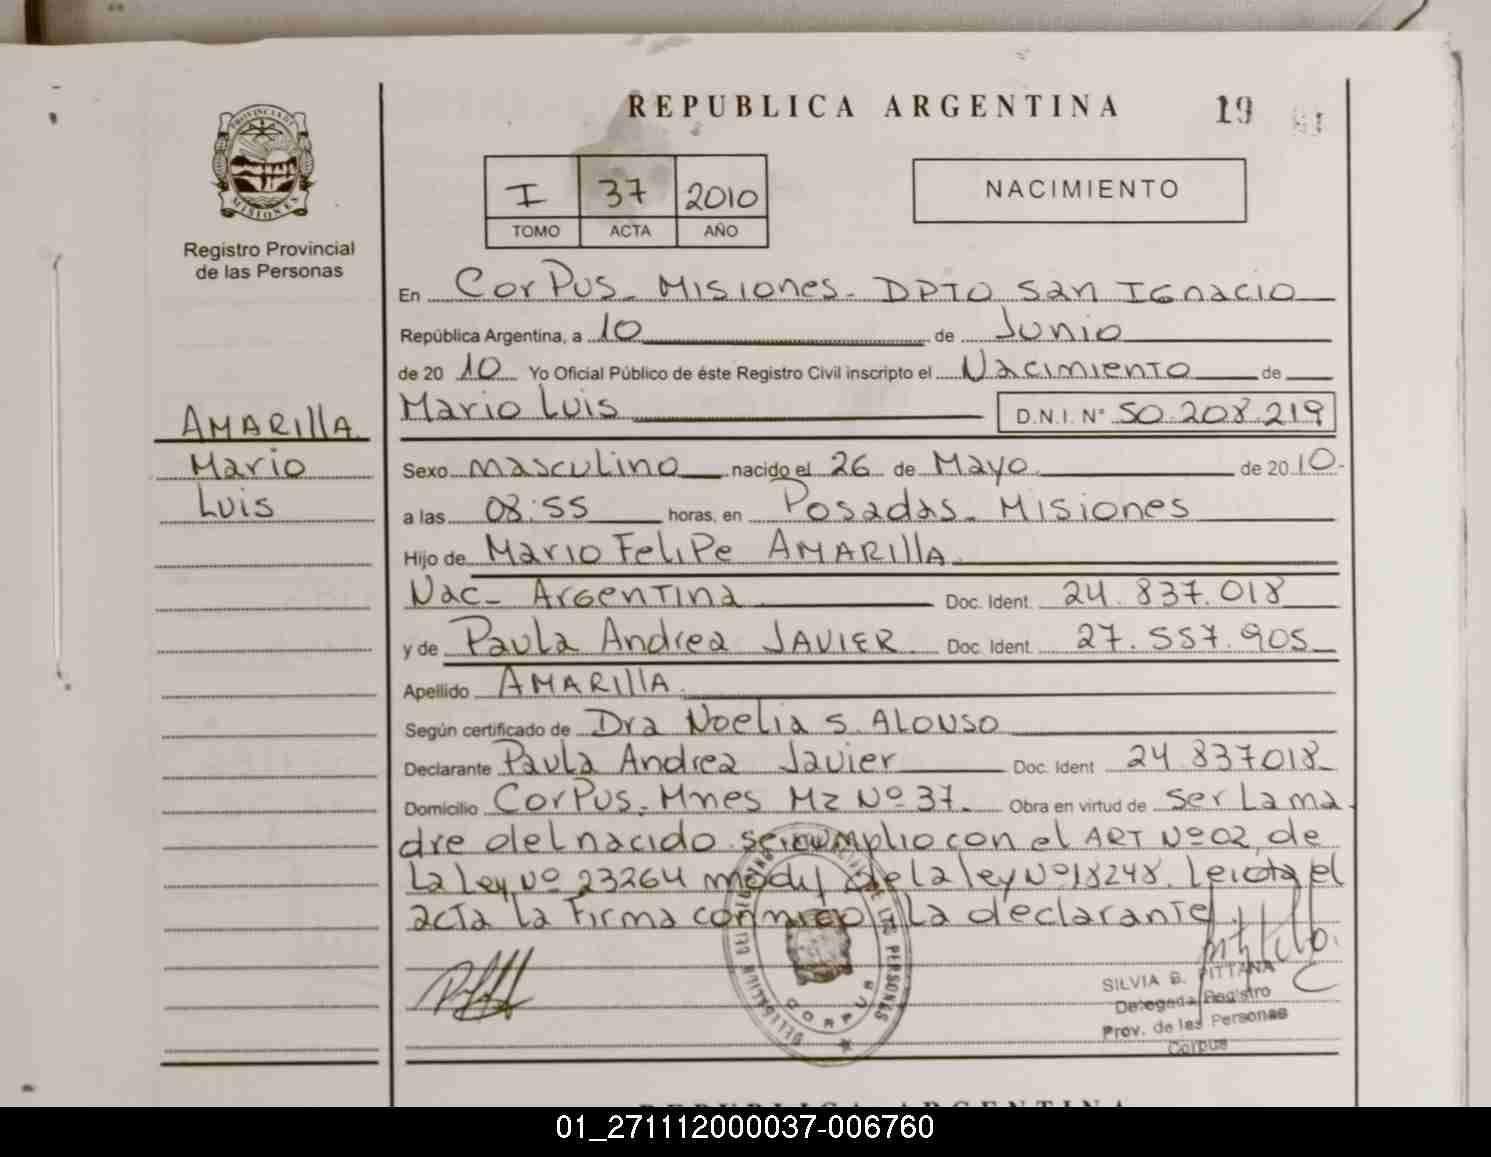 REPUBLICA ARGENTINA
19
PROVINCIA DE
MISIONES
Registro Provincial
de las Personas
I 37 2010
TOMO ACTA AÑO
NACIMIENTO
En Corpus - Misiones - DPTO San Ignacio
República Argentina, a 10 de Junio
de 20 10 Yo Oficial Público de éste Registro Civil inscripto el Nacimiento de
Mario Luis D.N.I. N° 50.208.219
AMARILLA
Mario
Luis
Sexo masculino nacido el 26 de Mayo de 20 10.-
a las 08:55 horas, en Posadas - Misiones
Hijo de Mario Felipe AMARILLA
Nac - Argentina Doc. Ident. 24.837.018
y de Paula Andrea JAVIER Doc. Ident. 27.557.905
Apellido AMARILLA
Según certificado de Dra Noelia S. ALONSO
Declarante Paula Andrea Javier Doc. Ident 24.837018
Domicilio Corpus. Mnes Mz Nº 37. Obra en virtud de ser la ma
dre del nacido se cumplio con el ART Nº 02, de
La Ley Nº 23264 modif de la ley Nº 18248. Leida el
acta la firma conmigo La declarante.
PERSONAS
CORPUS
SILVIA B. PITTANA
Delegada Registro
Prov. de las Personas
Corpus
01_271112000037-006760